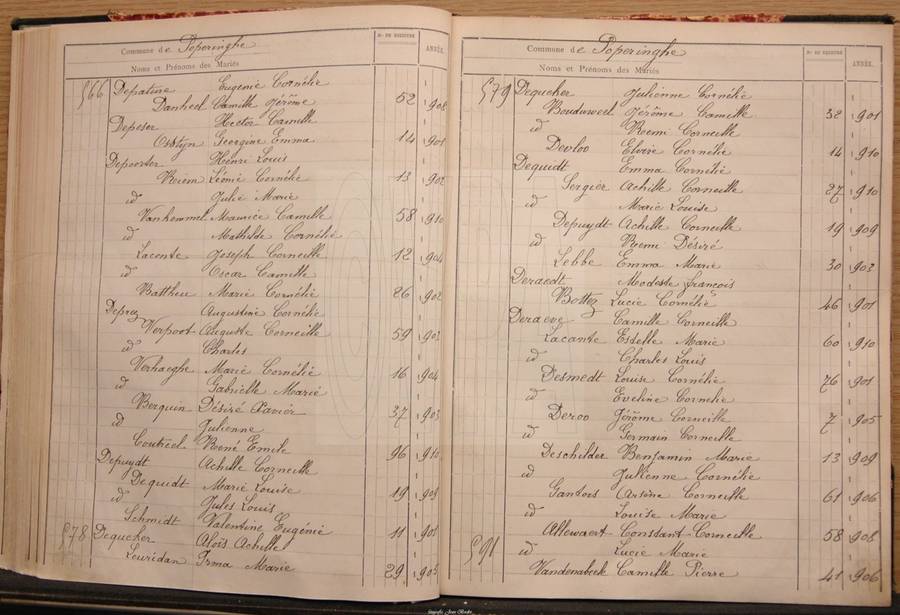 Commune de Poperinghe
Nos DE REGISTRE
ANNÉE.
Noms et Prénoms des Mariés
566 Depatine Eugénie Cornélie
Danheel Camille Jérôme 52 1908
Depeser Hector Camille
Osstyn Georgine Emma 14 1901
Depoorter Henri Louis
Reem Léonie Cornélie 13 1902
id Julie Marie
Vanhemmel Maurice Camille 58 1910
id Mathilde Cornélie
Laconte Joseph Corneille 12 1904
id Oscar Camille
Battheu Marie Cornélie 26 1902
Deprez Augustine Cornélie
Verpoot Auguste Corneille 59 1903
id Charles
Verhaeghe Marie Cornélie 16 1904
id Gabrielle Marie
Berquin Désiré Xavier 37 1903
id Julienne
Coutreel René Emile 96 1910
Depuydt Achille Corneille
Dequidt Marie Louise 19 1909
id Jules Louis
Schmidt Valentine Eugénie 11 1901
578 Dequeker Aloïs Achille
Leuridan Irma Marie 29 1905
Commune de Poperinghe
Nos DE REGISTRE
ANNÉE.
Noms et Prénoms des Mariés
579 Dequeker Julienne Cornélie
Bouduweel Jérôme Camille 32 1901
id Remi Corneille
Devloo Elvire Cornélie 14 1910
Dequidt Emma Cornélie
Sergier Achille Corneille 27 1910
id Marie Louise
Depuydt Achille Corneille 19 1909
id Remi Désiré
Lebbe Emma Marie 30 1903
Deraedt Modeste François
Bottez Lucie Cornélie 46 1901
Deraeve Camille Corneille
Lacante Estelle Marie 60 1910
id Charles Louis
Desmedt Louise Cornélie 76 1901
id Eveline Cornélie
Deroo Jérôme Corneille 7 1905
id Germain Corneille
Deschilder Benjamin Marie 13 1909
id Julienne Cornélie
Gantois Arsène Corneille 61 1906
id Louise Marie
Allewaert Constant Corneille 58 1908
591 id Lucie Marie
Vandenabeele Camille Pierre 41 1906